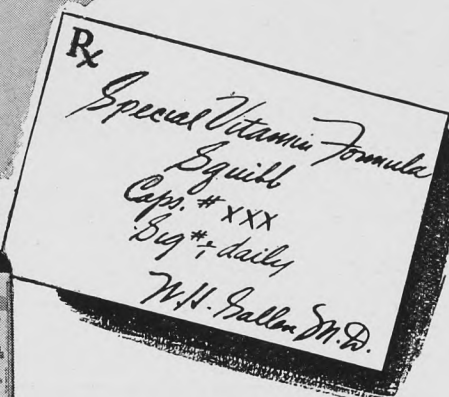 Rx
Special Vitamin Formula
Squibb
Caps. # XXX
Sig # daily
W.H. M.D.